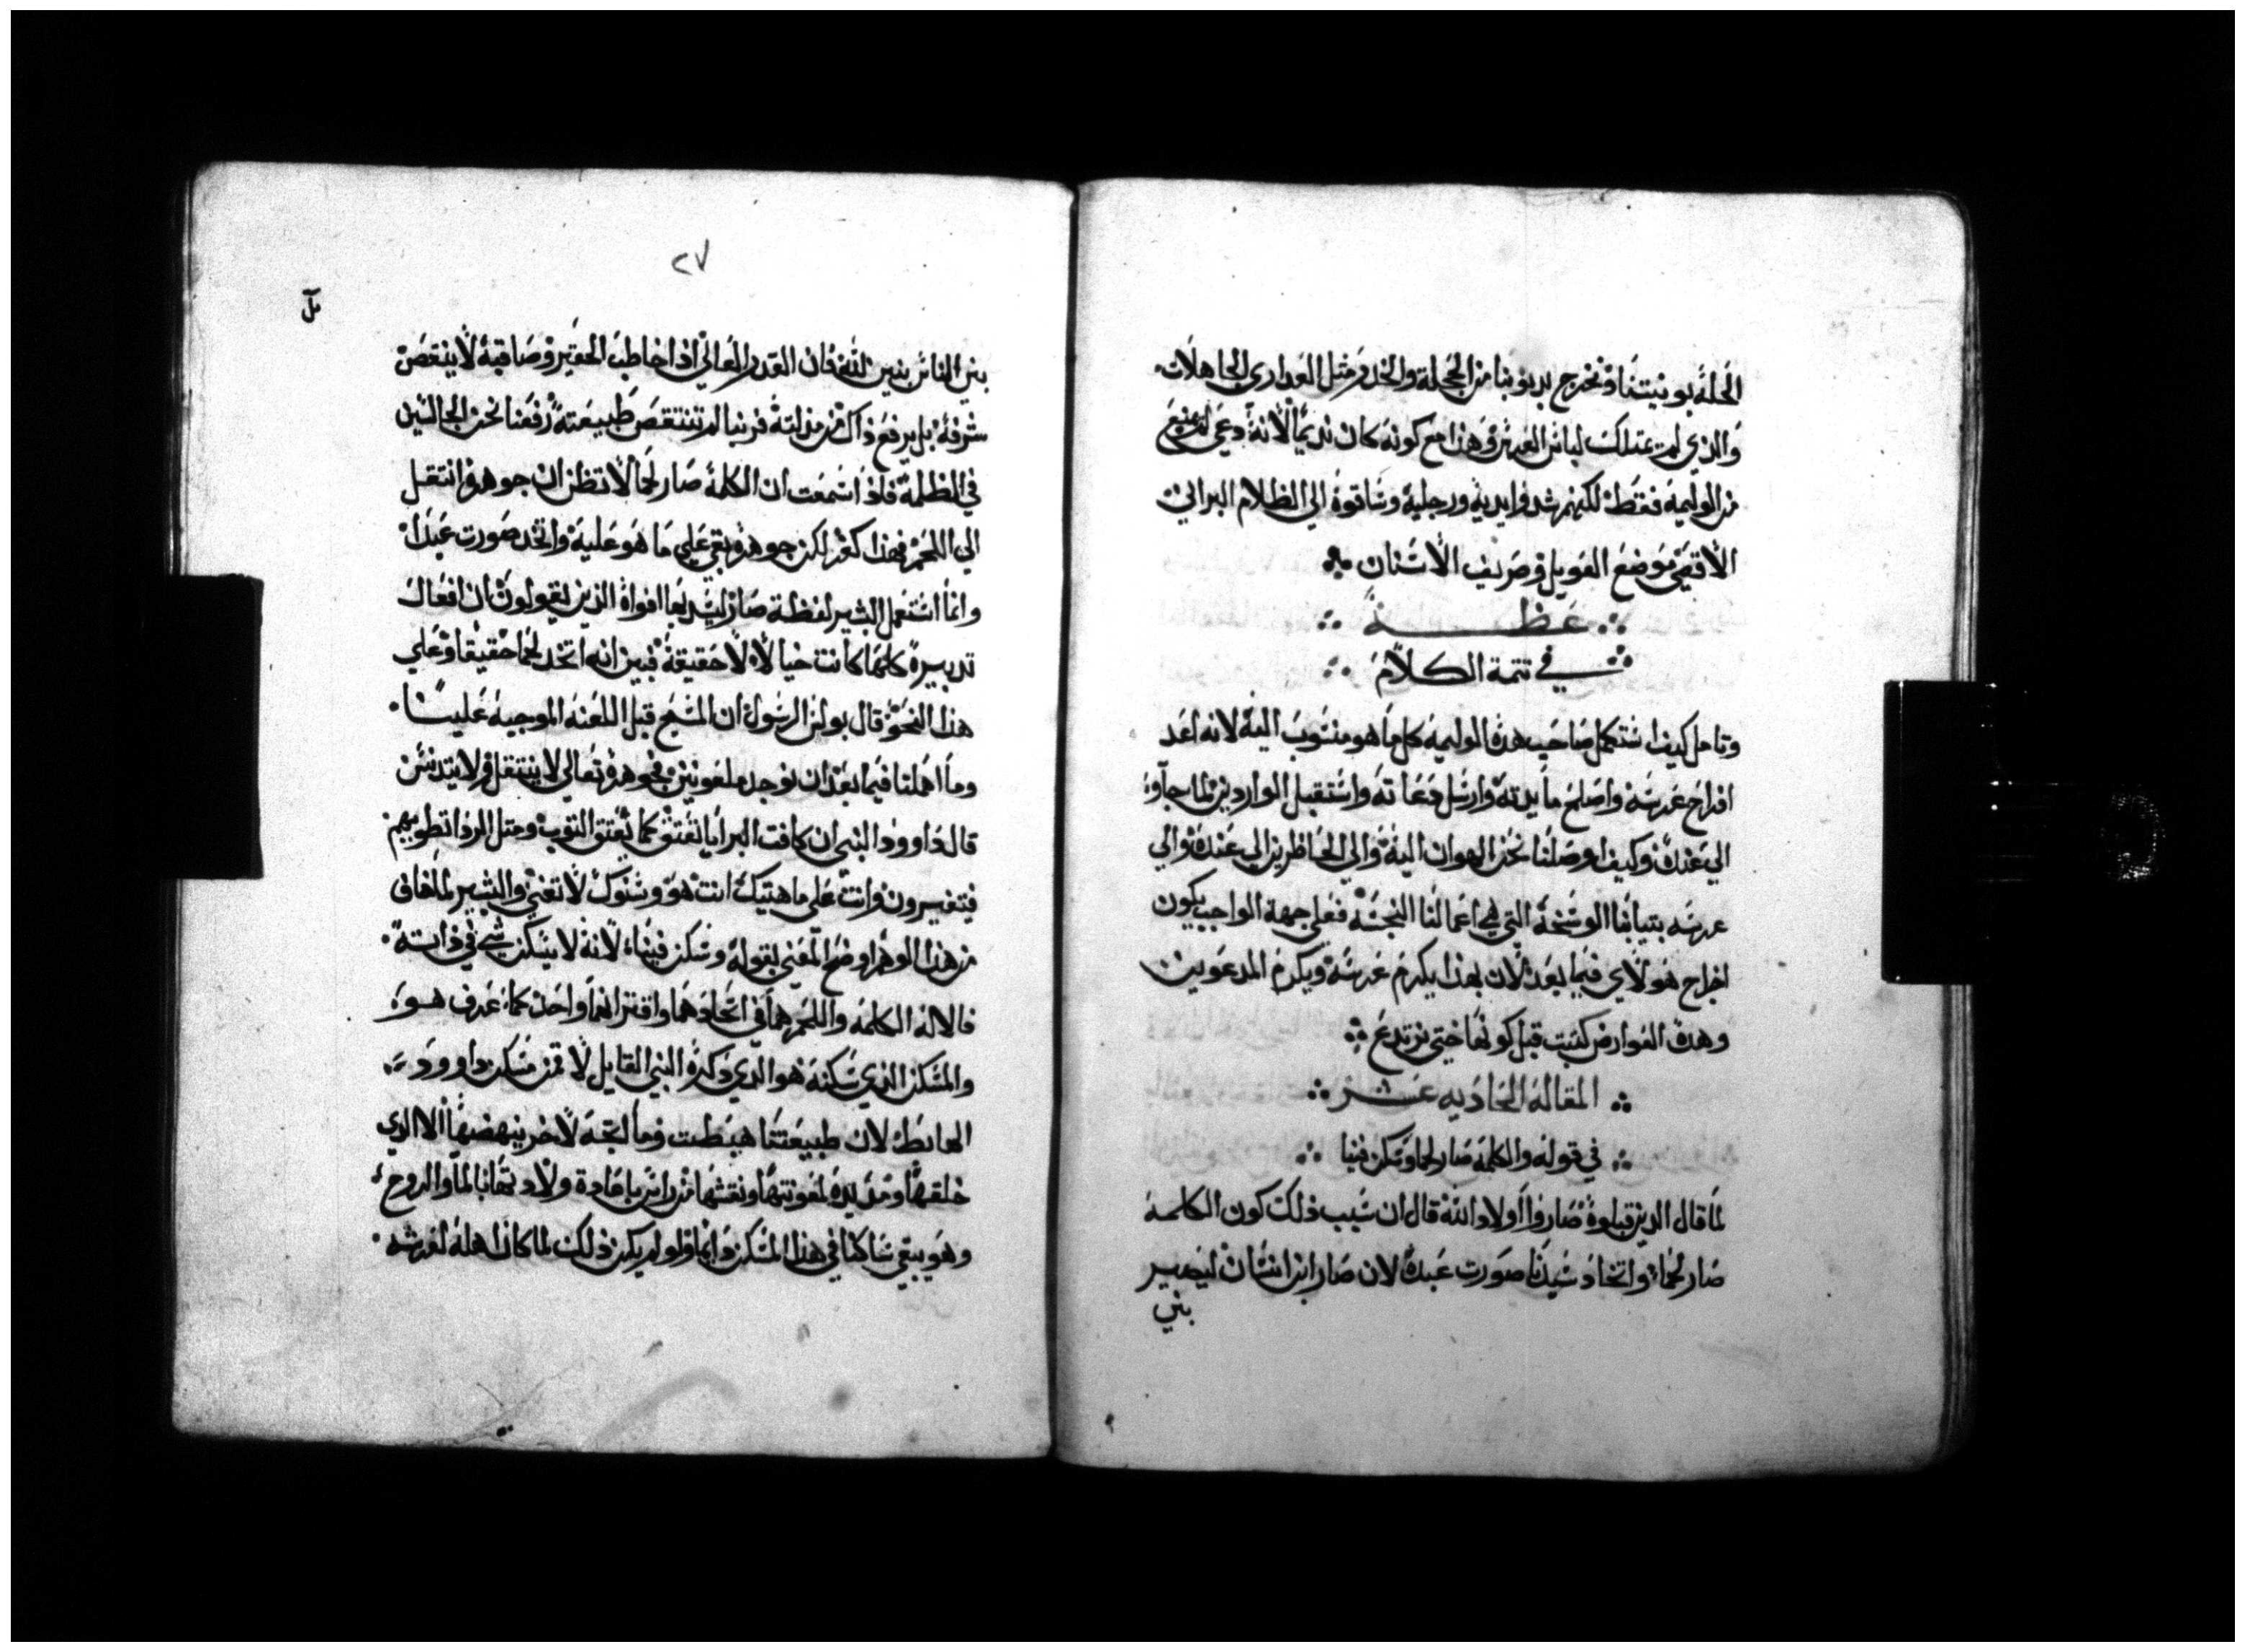 الحلة بدنيتنا ونخرج بديوننا من الحجلة والخدر مثل العداري الجاهلات
والذي لم يمتلك لباس العرس وهذا مع كونه كان نديمًا لانه دعي لم يمنع
من الوليمة فقط لكنهم شدوا ايديه ورجليه وساقوه الي الظلام البراني
الاقصي موضع العويل وصريف الاسنان
عظة
في تتمة الكلام
وتامل كيف استكمل صاحب هده الوليمه كل ما هو منسوب اليه لانه اعد
افراح عرسه واصلح مايدته وارسل دعاته واستقبل الواردين لما جاوء
الي عنده وكيف اوصلنا نحن الهوان اليه والي الحاظرين الي عنده والي
عرسه بتيابنا الوسخة التي هي اعمالنا النجسه فعلي جهة الواجب يكون
اخراج هولاي فيما بعد لان بهذا يكرم عرسه ويكرم المدعوين
وهده العوارض كتبت قبل كونها حتي نرتدع
المقالة الحاديه عشر
في قوله والكلمة صار لحما وسكن فينا
لما قال الدين قبلوه صاروا اولاد الله قال ان سبب ذلك كون الكلمة
صار لحما واتخاد سيدنا صورت عبده لان صار ابن انسان ليصير
بني
٢٧
بني الناس بنين لله فان القدر العالي اذا خاطب الحقير وصاقبه لا ينقص
شرفه بل يرفع ذاك من مذلته فربنا لم تنتقص طبيعته رفعنا نحن الجالسين
في الظلمة فاذا سمعت ان الكلمة صار لحما لا تظن ان جوهره انتقل
الي اللحم فهذا كفر لكن جوهره بقي علي ما هو عليه واتخد صورت عبد
وانما استعمل البشير لفظة صار ليسد بها افواه الذين يقولون ان افعال
تدبيره كلها كانت خيالا لا حقيقة فبين انه اتخد لحما حقيقا وعلي
هذا النحو قال بولس الرسول ان المسيح قبل اللعنه الموجبه علينا
وما اهملنا فيما بعد ان نوجد ملعونين فجوهره تعالي لا ينتقل ولا يتدنس
قال داوود النبي ان كافت البرايا تعتق كما يعتق التوب ومتل الردا تطويهم
فيتغيرون وانت علي ماهيتك انت هو وسنوك لا تفني والبشير لما خاف
من هذا الوهم اوضح المعني بقوله وسكن فينا لانه لا يسكن شي في ذاته
فالاله الكلمه واللحم هما في اتحادهما واقترانهما واحد كما عرف هو
والمسكن الذي سكنه هو الدي ذكره النبي القايل لاقمن مسكن داوود
الهابط لان طبيعتنا هبطت وما اتجه لاخر ينهضها الا الدي
خلقها ومد يده لمعونتها ونقشها من راس باعادة ولادتها بالماء والروح
وهو يبقي ساكنا في هذا المسكن دايما ولو لم يكن ذلك لما كان اهله لعرشه